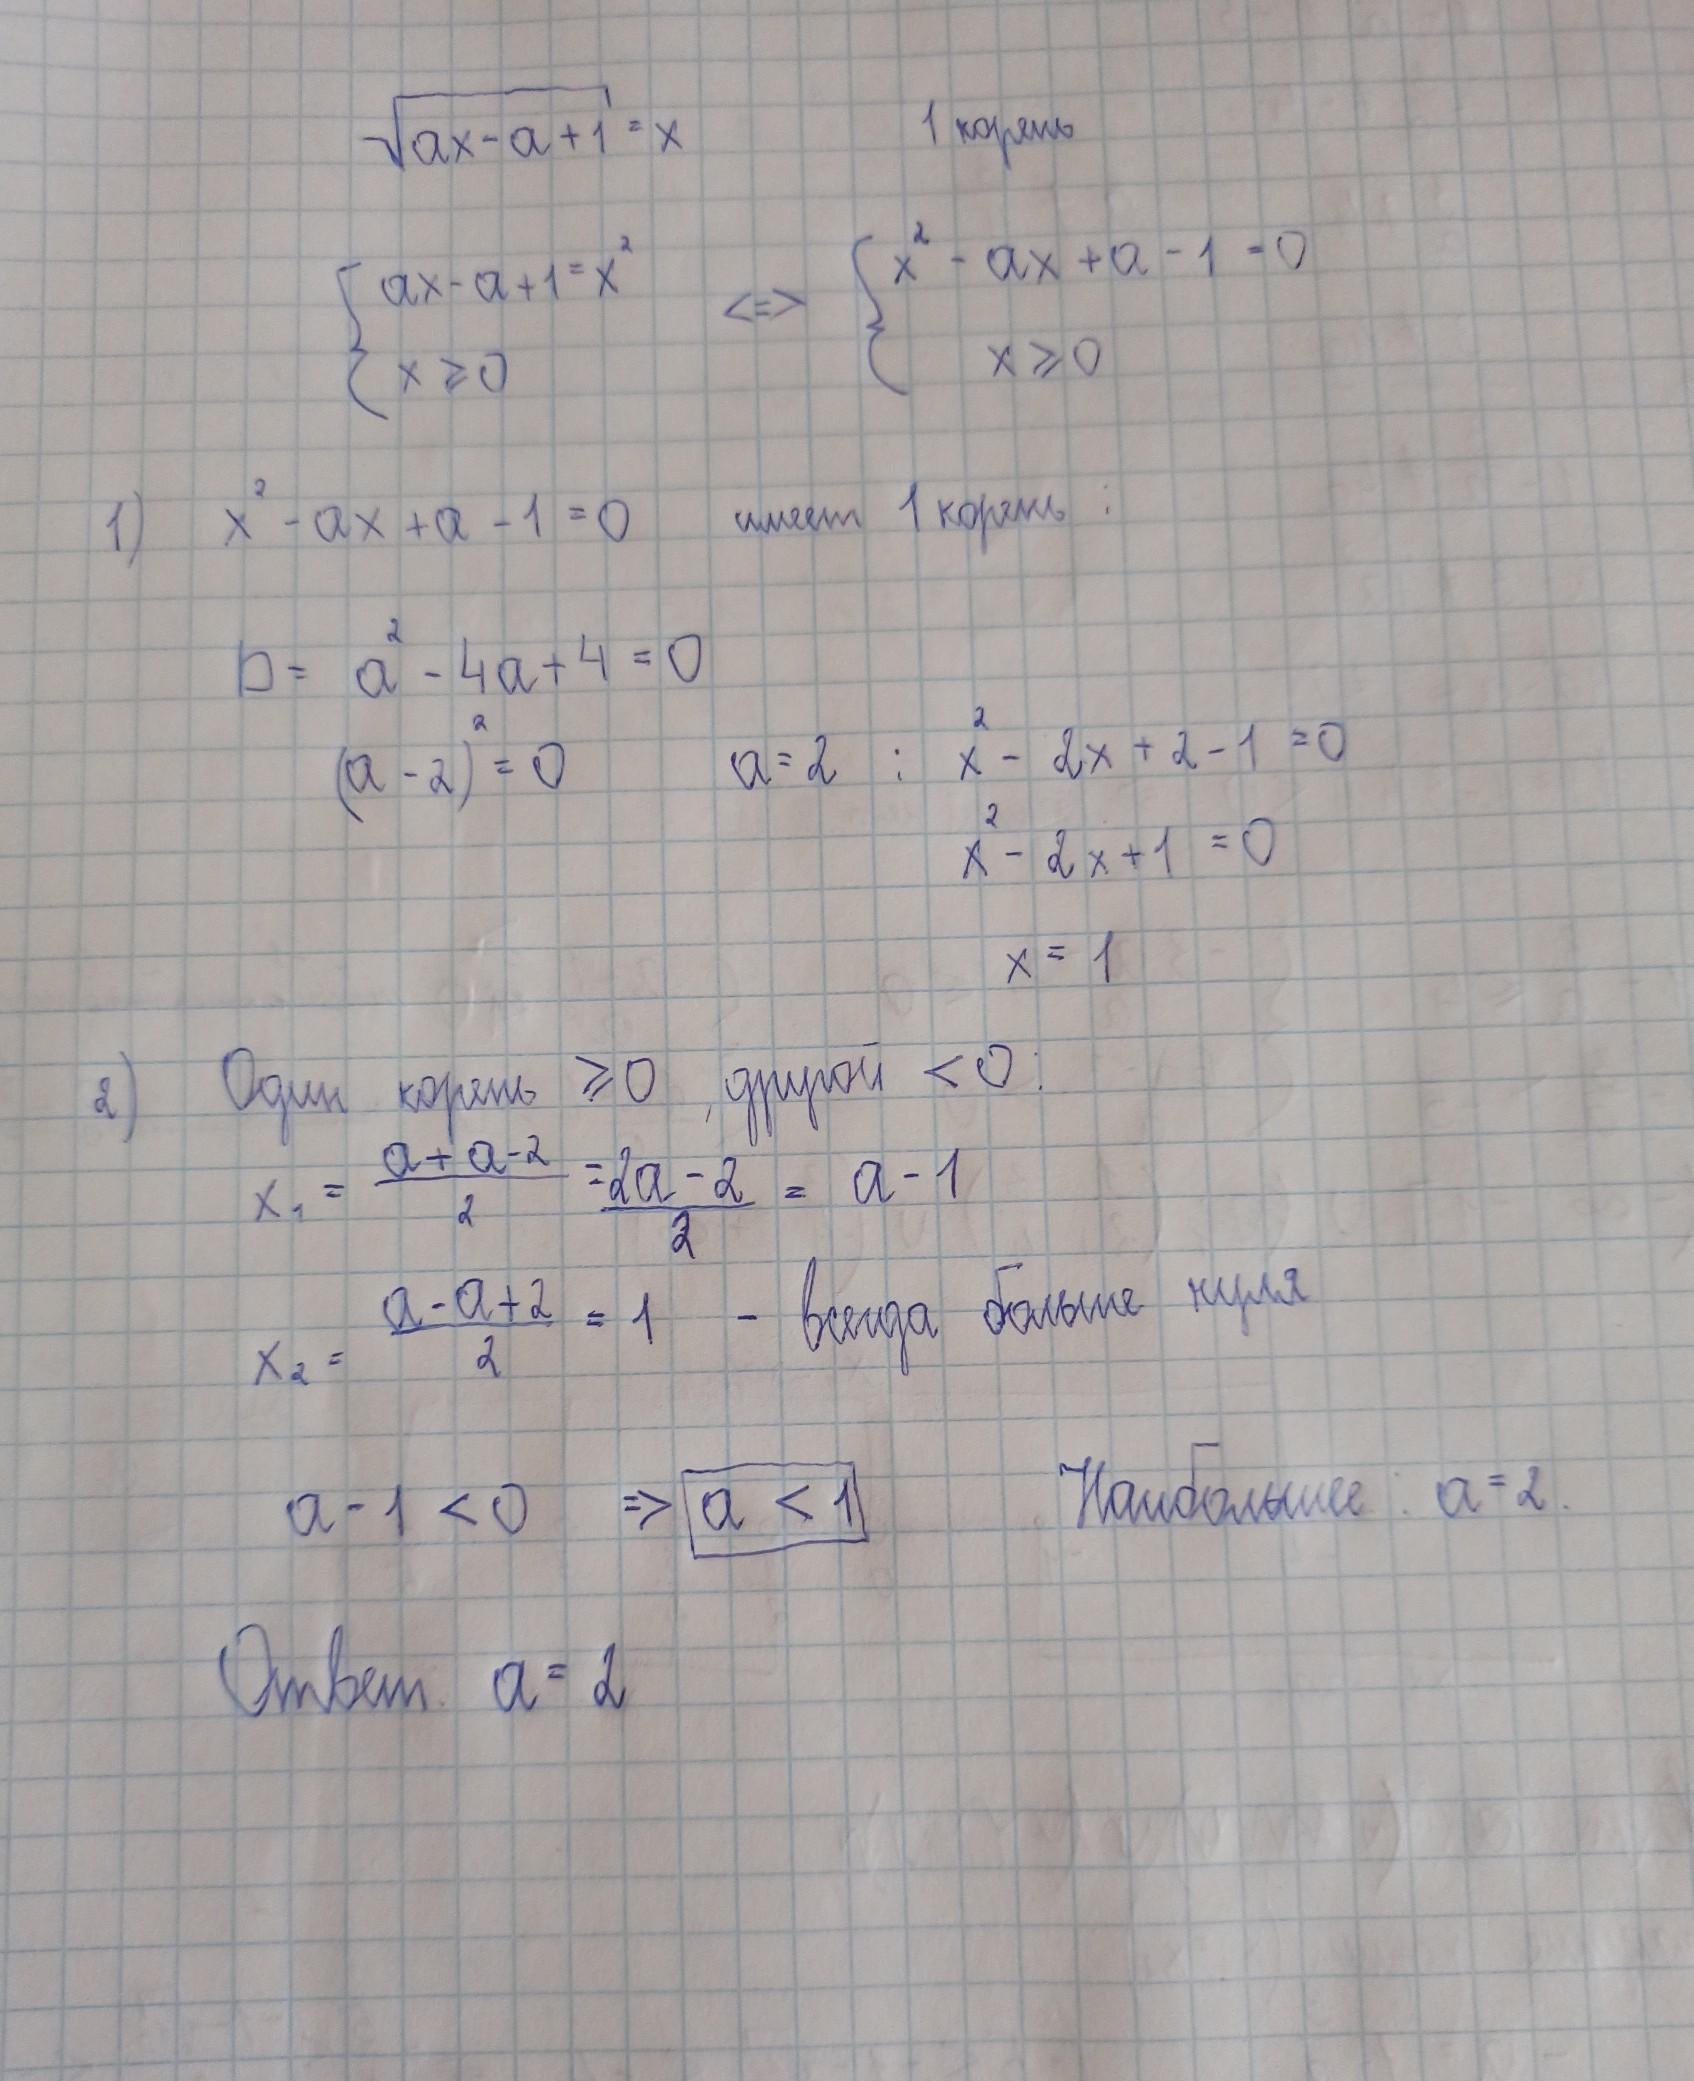 √(ax-a+1) = x 1 корень
{ ax-a+1=x² <=> { x² - ax + a - 1 = 0
x ≥ 0 x ≥ 0
1) x² - ax + a - 1 = 0 имеет 1 корень :
D = a² - 4a + 4 = 0
(a - 2)² = 0 a = 2 : x² - 2x + 2 - 1 = 0
x² - 2x + 1 = 0
x = 1
2) Один корень ≥ 0, другой < 0 :
x₁ = (a + a - 2)/2 = (2a - 2)/2 = a - 1
x₂ = (a - a + 2)/2 = 1 - всегда больше нуля
a - 1 < 0 => a < 1 Наибольшее : a = 2.
Ответ. a = 2